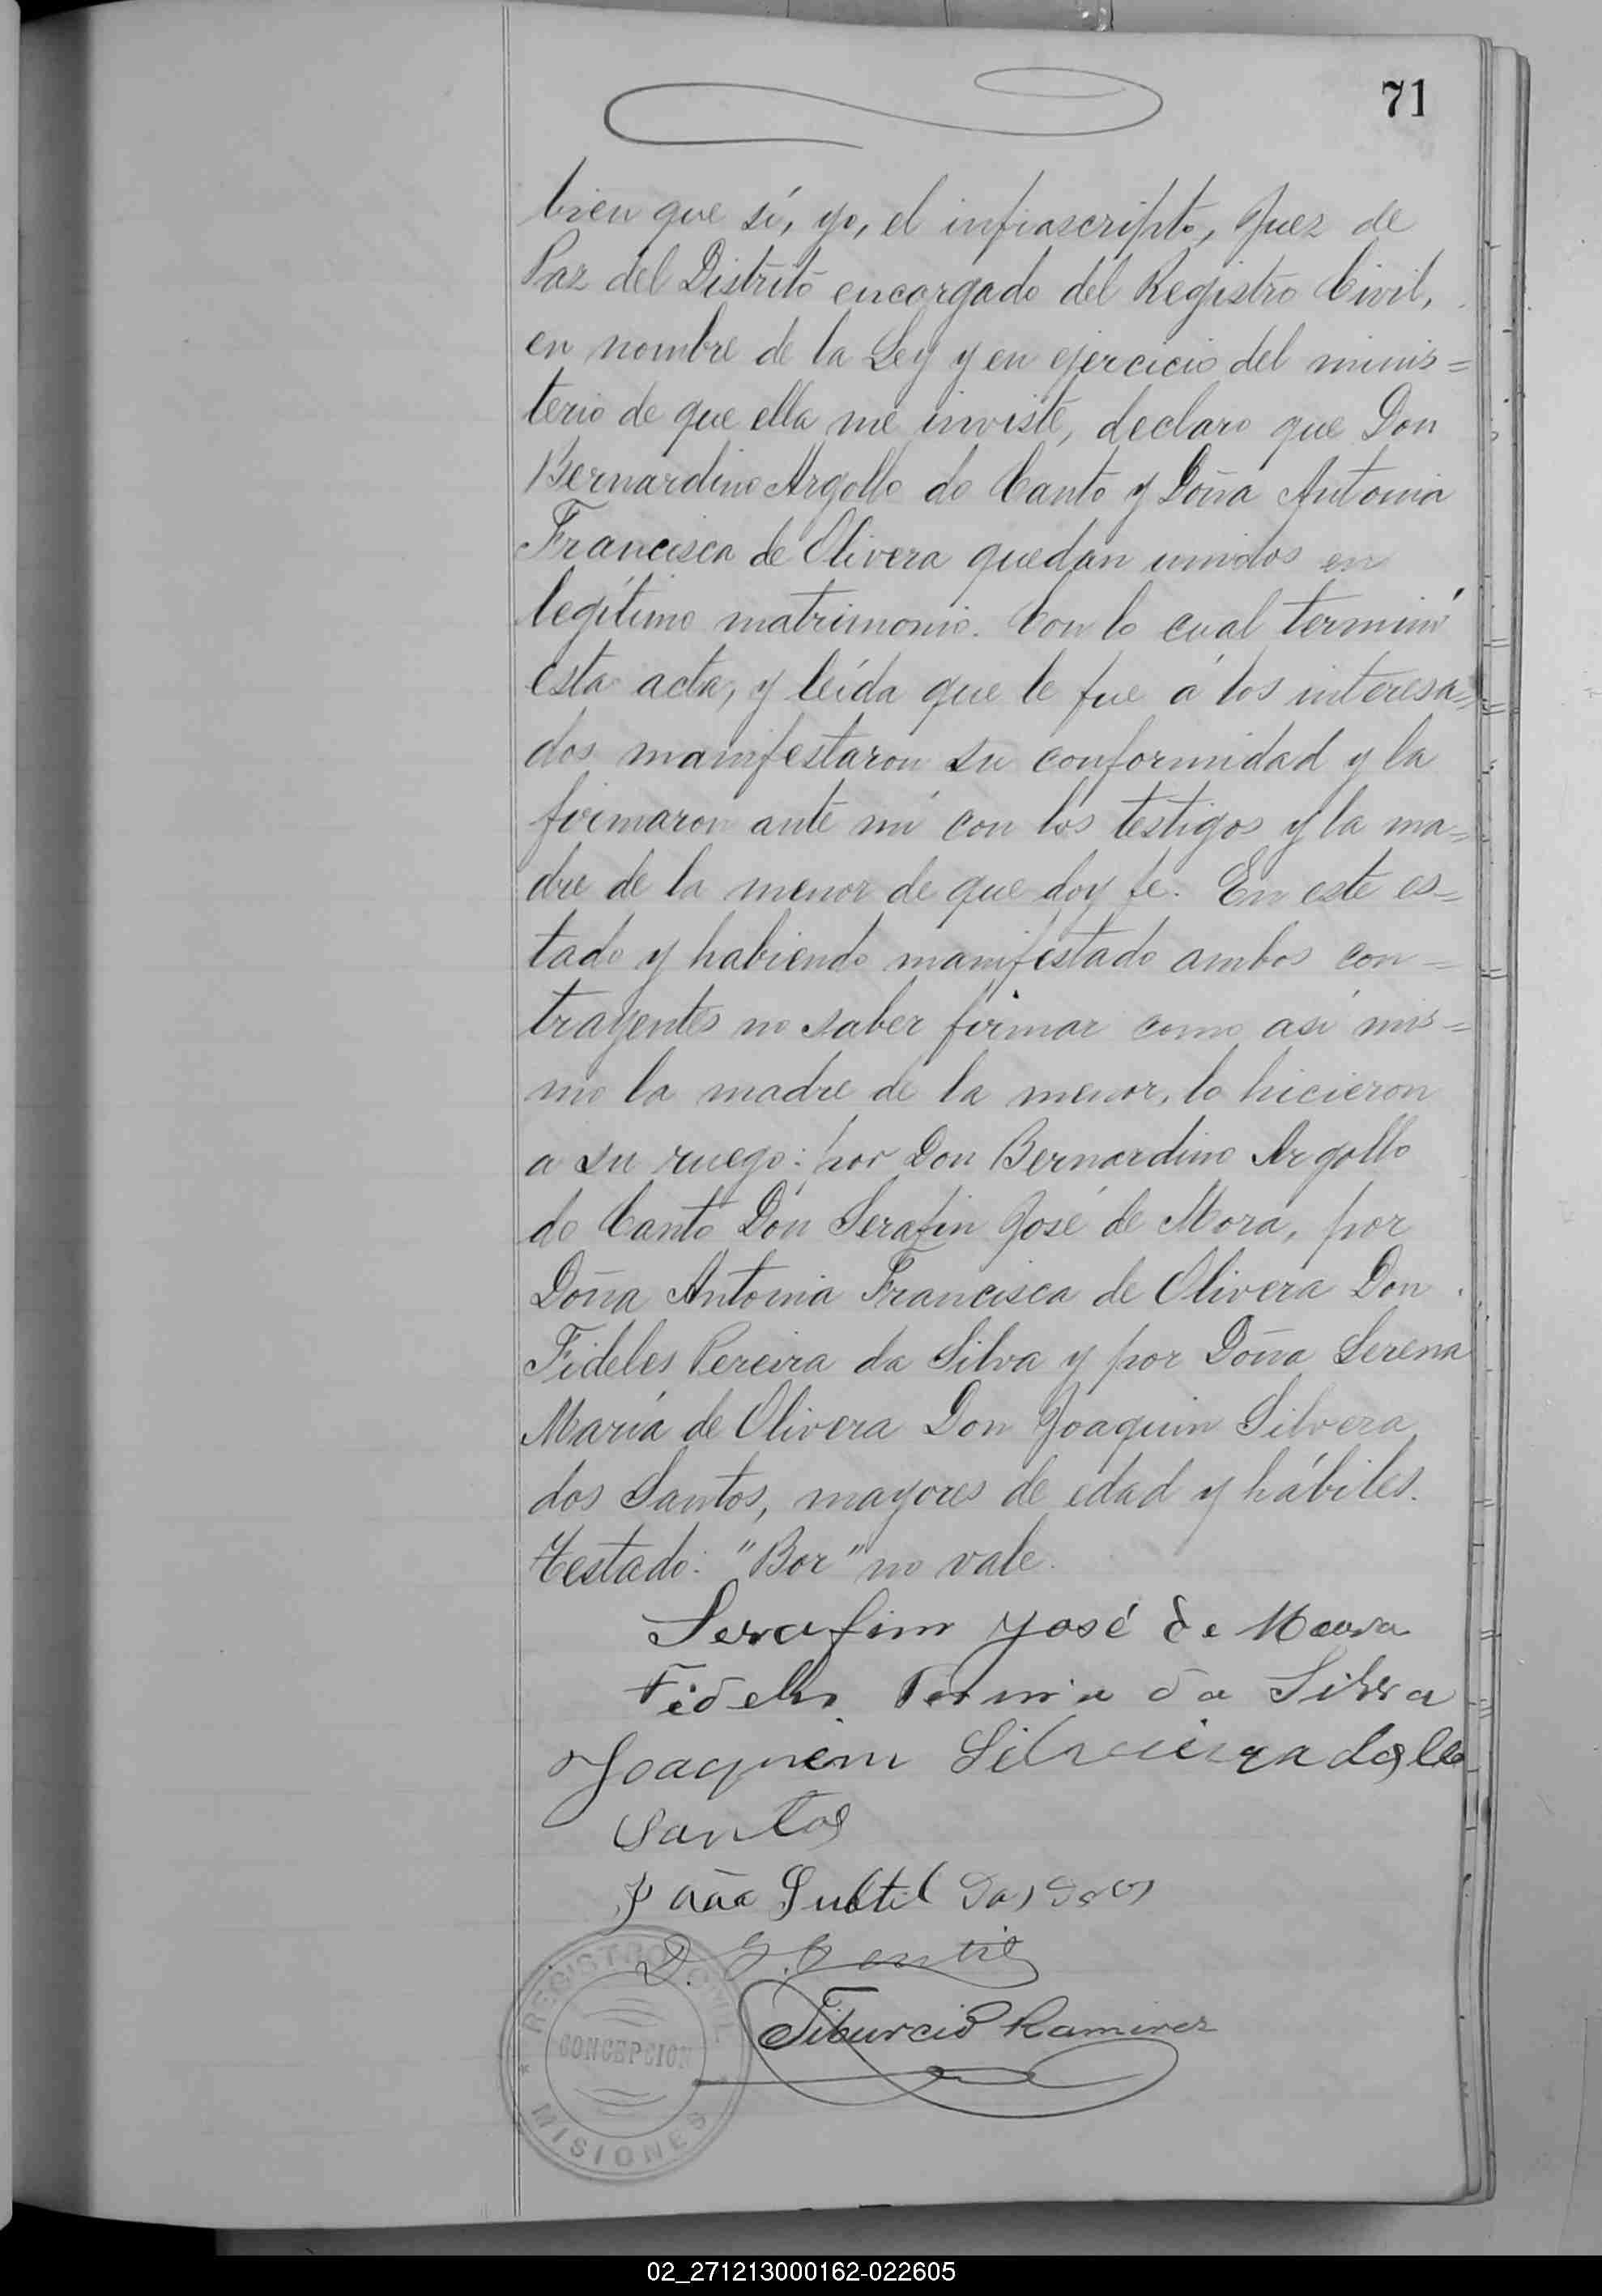 71
bien que sí, yo, el infrascripto, Juez de
Paz del Distrito encargado del Registro Civil,
en nombre de la Ley y en ejercicio del minis=
terio de que ella me inviste, declaro que Don
Bernardino Argollo do Canto y Doña Antonia
Francisca de Olivera quedan unidos en
legítimo matrimonio. Con lo cual terminó
esta acta, y leída que le fue á los interesa=
dos manifestaron su conformidad y la
firmaron ante mí con los testigos y la ma=
dre de la menor de que doy fe. En este es=
tado y habiendo manifestado ambos con=
trayentes no saber firmar como así mis=
mo la madre de la menor, lo hicieron
a su ruego: por Don Bernardino Argollo
do Canto Don Serafin José de Mora, por
Doña Antonia Francisca de Olivera Don
Fideles Pereira da Silva y por Doña Serena
María de Olivera Don Joaquin Silvera
dos Santos, mayores de edad y hábiles.
Testado: "Bor" no vale.
Serafim José de Moura
Fidelis da Silva
Joaquim Silveira
Santos
Subtil
D. G. Gentil
Tiburcio Ramirez
REGISTRO CIVIL
CONCEPCION
* MISIONES *
02_271213000162-022605